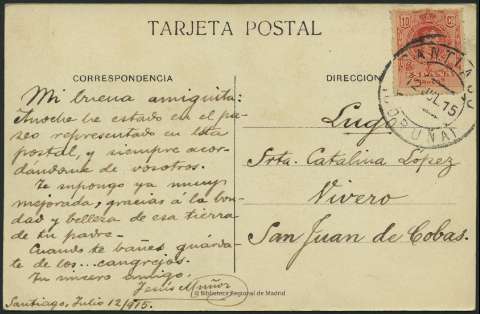 TARJETA POSTAL
CORRESPONDENCIA
Mi buena amiguita:
Anoche he estado en el pa-
seo representado en esta
postal, y siempre acor-
dándome de vosotros.
Te supongo ya muy
mejorada, gracias á la bon-
dad y belleza de esa tierra
de tu padre.-
Cuando te bañes guárda-
te de los... cangrejos.
Tu sincero amigo.
Jesús Muñoz
Santiago, Julio 12/915.
DIRECCION
Lugo
Srta. Catalina López
Vivero
San Juan de Cobas.
10 Cs
SANTIAGO
12 JUL 15
CORUÑA
© Biblioteca Regional de Madrid